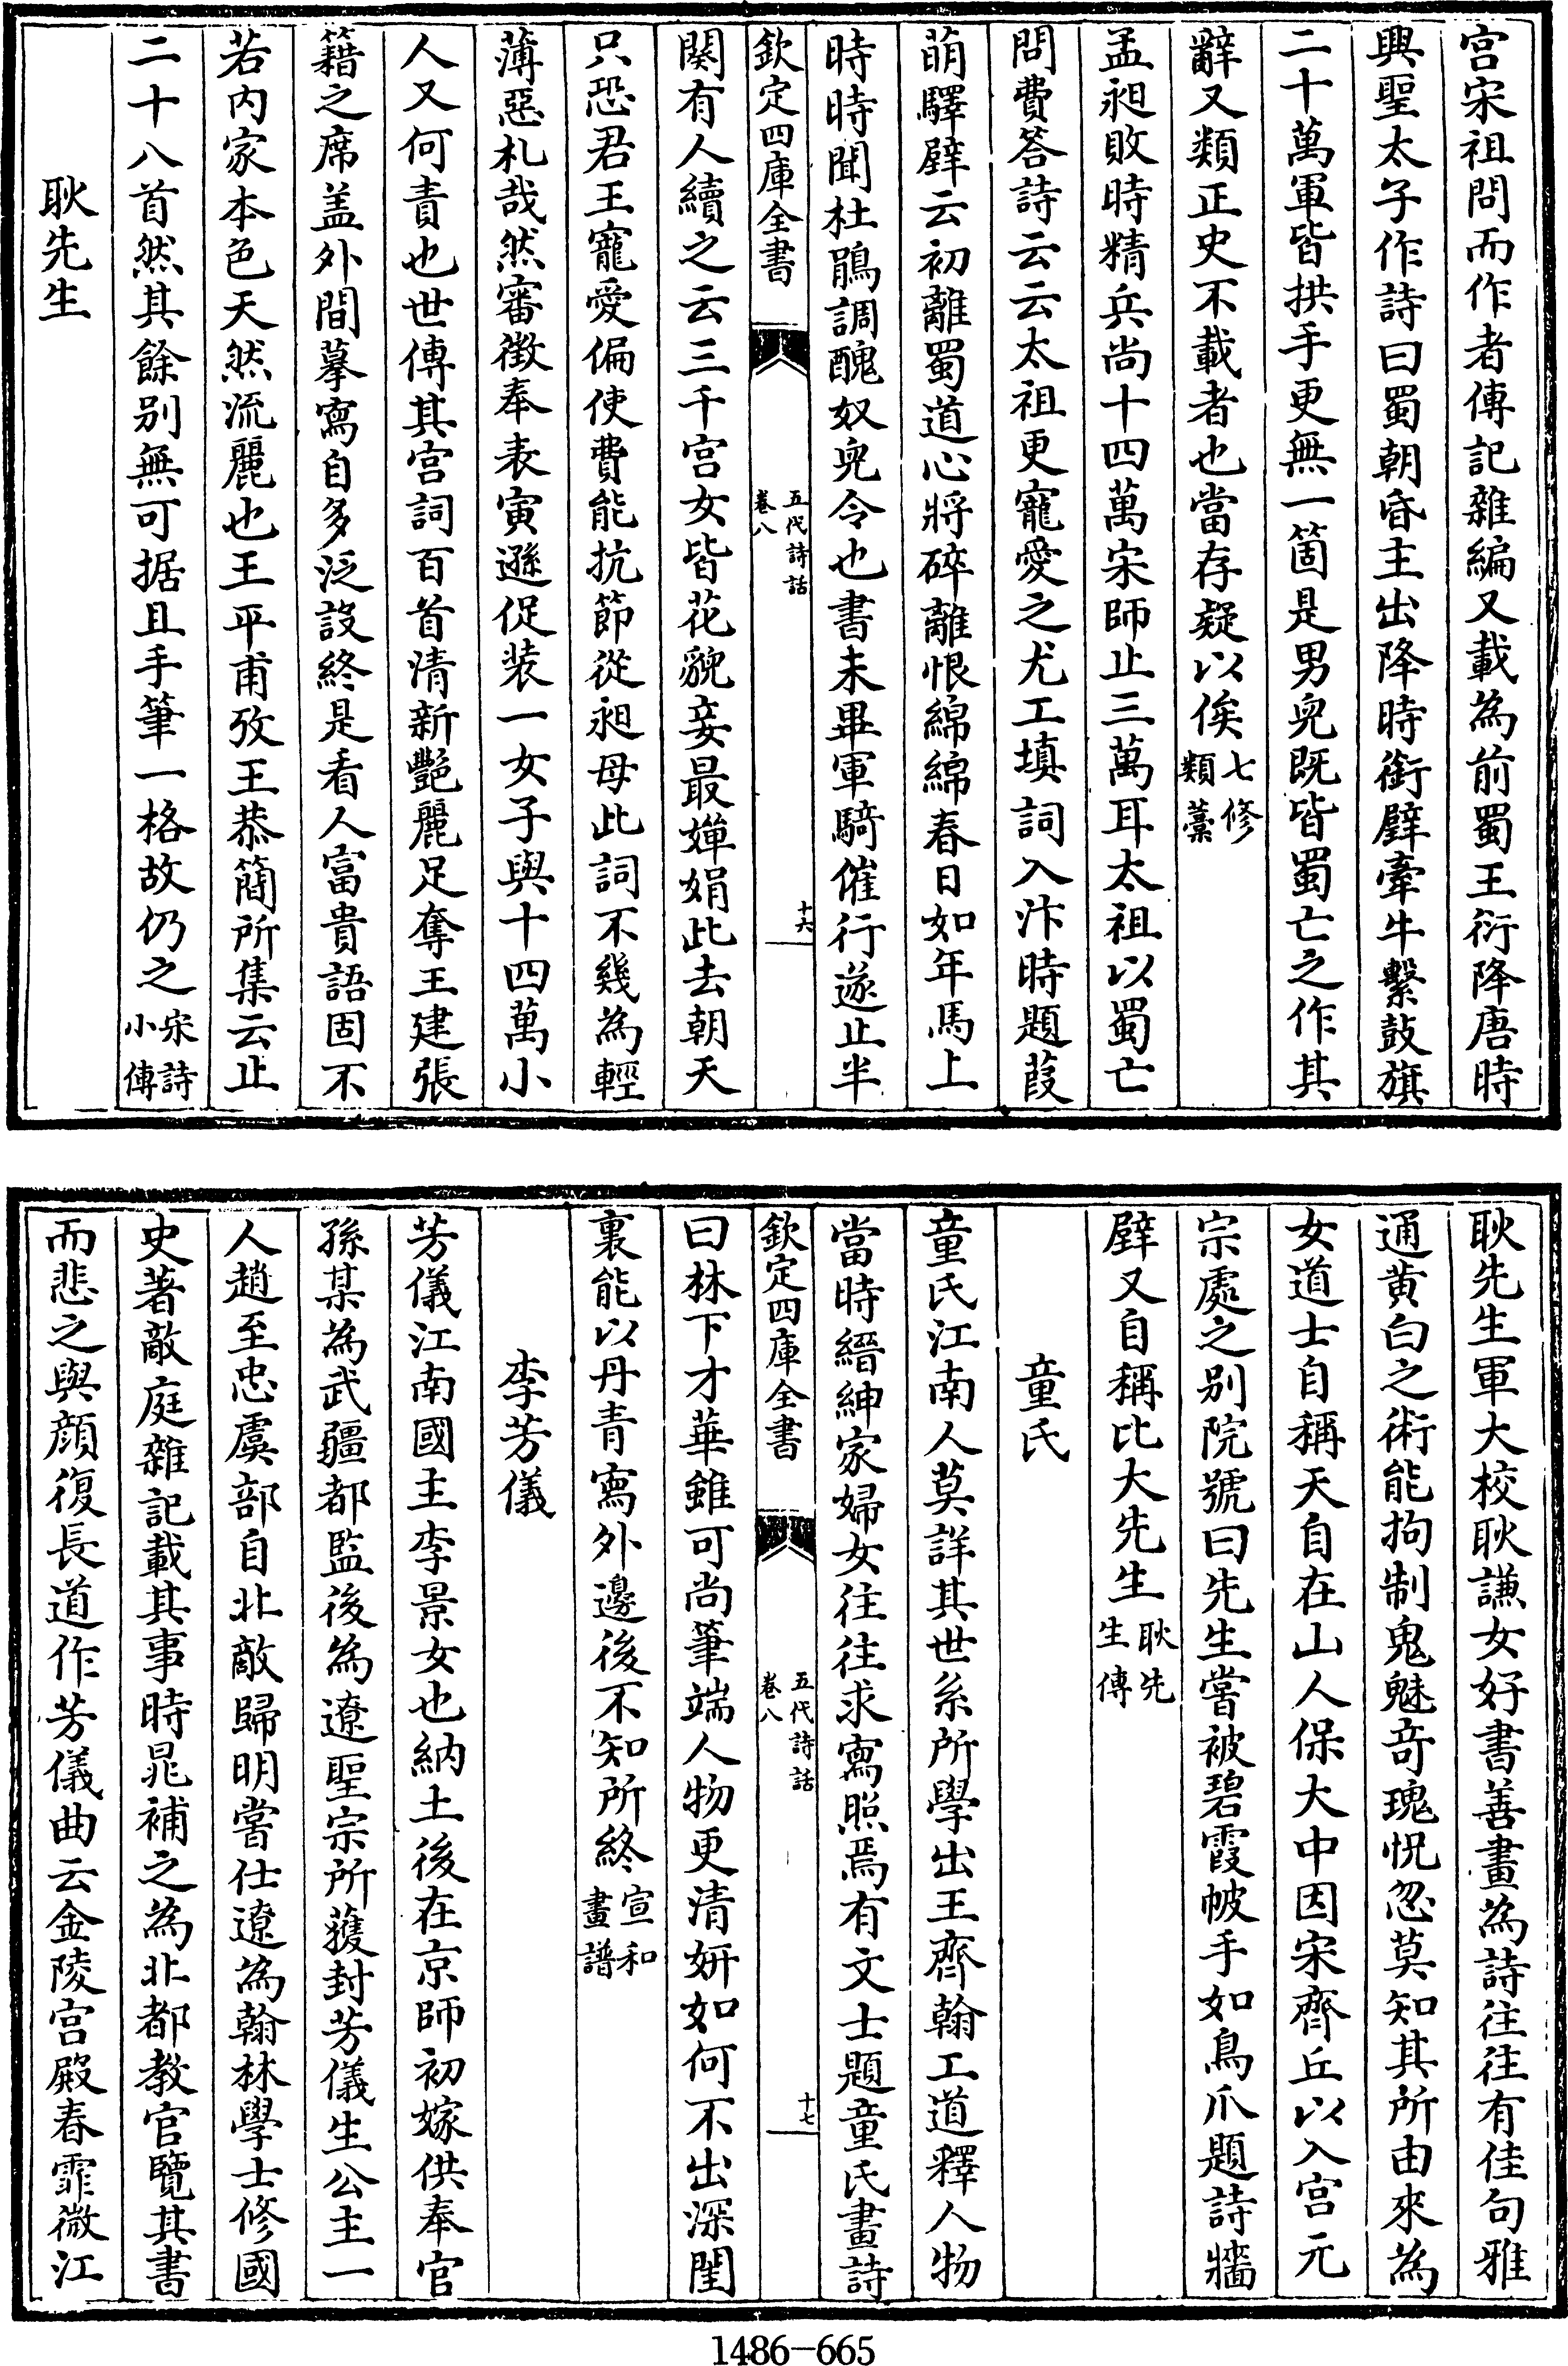 宫宋祖問而作者傳記雜編又載為前蜀王衍降唐時
興聖太子作詩曰蜀朝昏主出降時銜璧牽牛繫鼓旗
二十萬軍皆拱手更無一箇是男兒既皆蜀亡之作其
辭又類正史不載者也當存疑以俟七修類藁
孟昶敗時精兵尚十四萬宋師止三萬耳太祖以蜀亡
問費答詩云云太祖更寵愛之尤工填詞入汴時題葭
萌驛壁云初離蜀道心將碎離恨綿綿春日如年馬上
時時聞杜鵑調醜奴兒令也書未畢軍騎催行遂止半
欽定四庫全書
五代詩話
卷八
十六
闋有人續之云三千宫女皆花貌妾最嬋娟此去朝天
只恐君王寵愛偏使費能抗節從昶母此詞不幾為輕
薄惡札哉然審徴奉表寅遜促装一女子與十四萬小
人又何責也世傳其宫詞百首清新艷麗足奪王建張
籍之席盖外間摹寫自多泛設終是看人富貴語固不
若内家本色天然流麗也王平甫攷王恭簡所集云止
二十八首然其餘别無可据且手筆一格故仍之宋詩小傳
耿先生
耿先生軍大校耿謙女好書善畫為詩往往有佳句雅
通黄白之術能拘制鬼魅竒瑰怳忽莫知其所由來為
女道士自稱天自在山人保大中因宋齊丘以入宫元
宗處之别院號曰先生嘗被碧霞帔手如鳥爪題詩牆
壁又自稱比大先生耿先生傳
童氏
童氏江南人莫詳其世系所學出王齊翰工道釋人物
當時縉紳家婦女往往求寫照焉有文士題童氏畫詩
欽定四庫全書
五代詩話
卷八
十七
曰林下才華雖可尚筆端人物更清妍如何不出深閨
裏能以丹青寫外邊後不知所終宣和畫譜
李芳儀
芳儀江南國主李景女也納土後在京師初嫁供奉官
孫某為武疆都監後為遼聖宗所獲封芳儀生公主一
人趙至忠虞部自北敵歸明嘗仕遼為翰林學士修國
史著敵庭雜記載其事時晁補之為北都教官覽其書
而悲之與顔復長道作芳儀曲云金陵宫殿春霏微江
1486-665